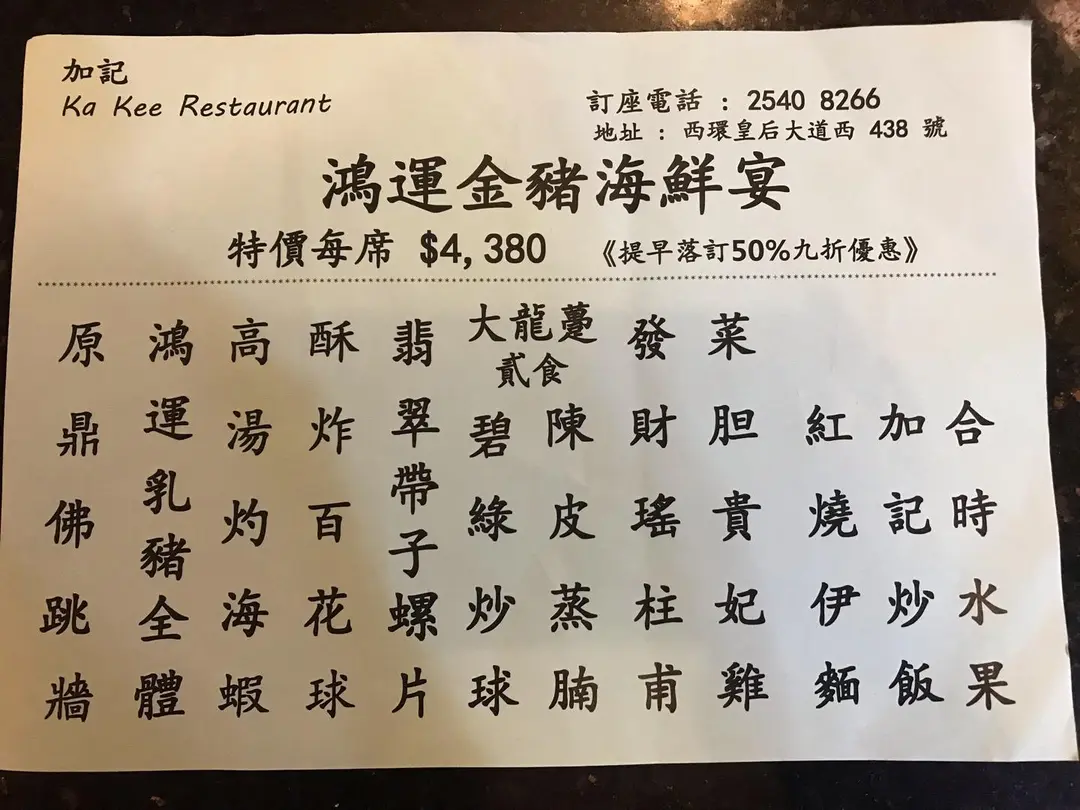 加記
Ka Kee Restaurant
訂座電話 : 2540 8266
地址 : 西環皇后大道西 438 號
鴻運金豬海鮮宴
特價每席 $4,380 《提早落訂50%九折優惠》
原鼎佛跳牆
鴻運乳豬全體
高湯灼海蝦
酥炸百花球
翡翠帶子螺片
大龍躉
貳食
碧綠炒球
陳皮蒸腩
發財瑤柱甫
菜胆貴妃雞
紅燒伊麵
加記炒飯
合時水果